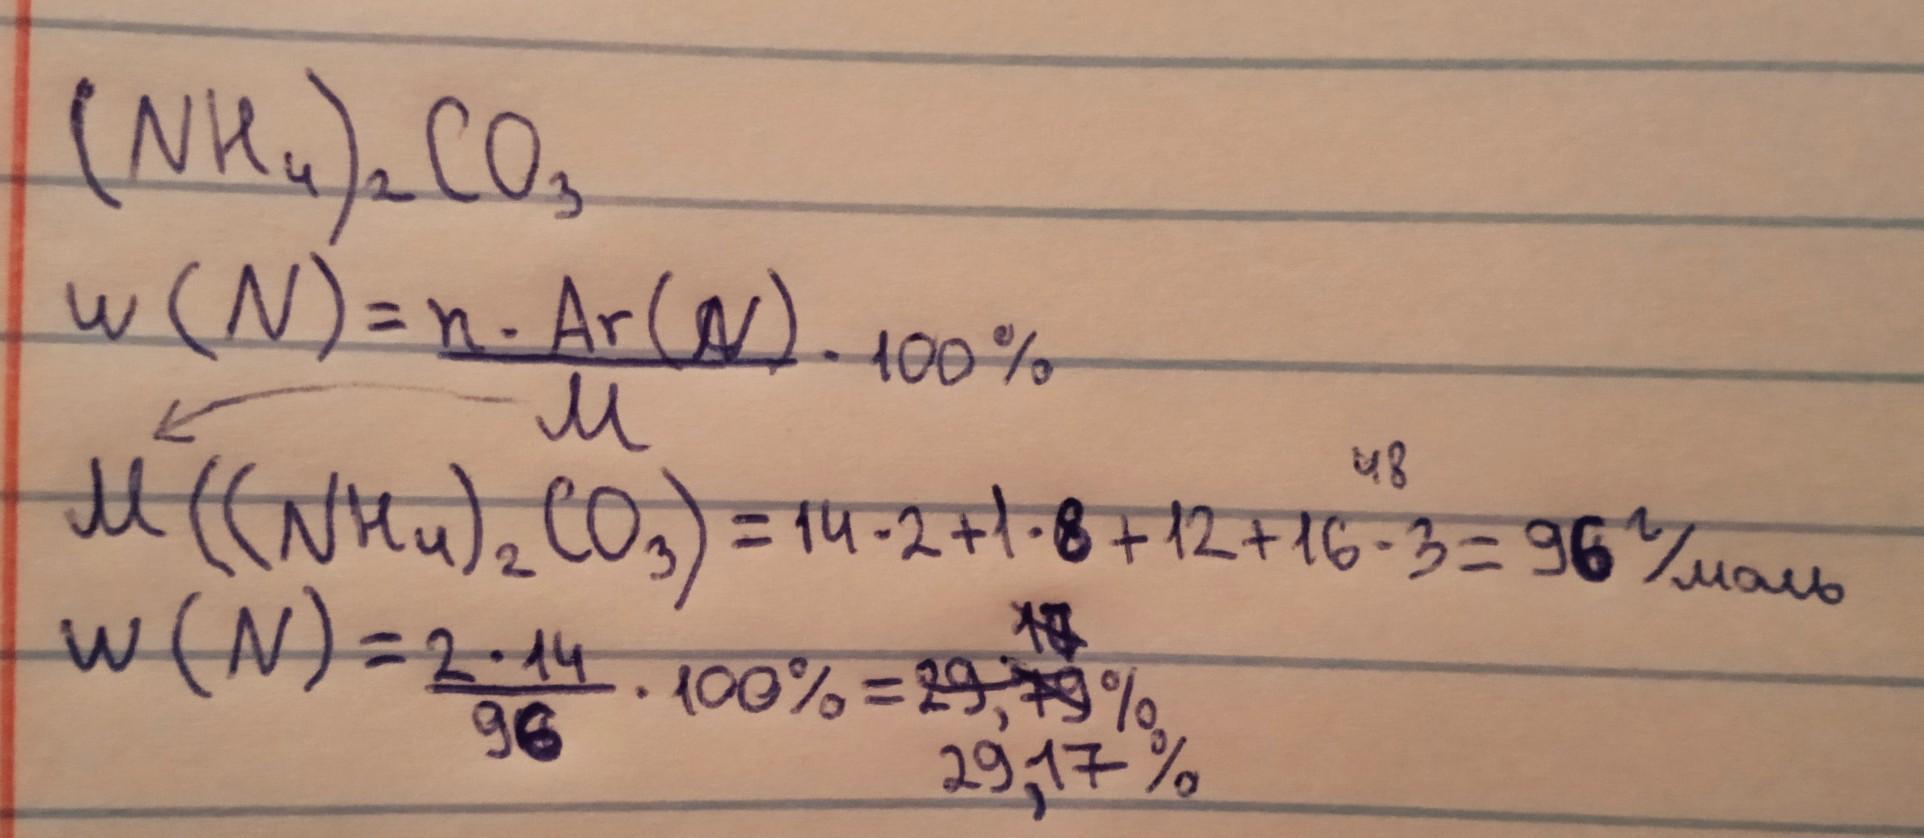 (NH₄)₂CO₃
w(N) = n · Ar(N) / M · 100%
48
M((NH₄)₂CO₃) = 14·2+1·8+12+16·3 = 96 г/моль
w(N) = 2·14 / 96 · 100% = 29,79%
29,17%